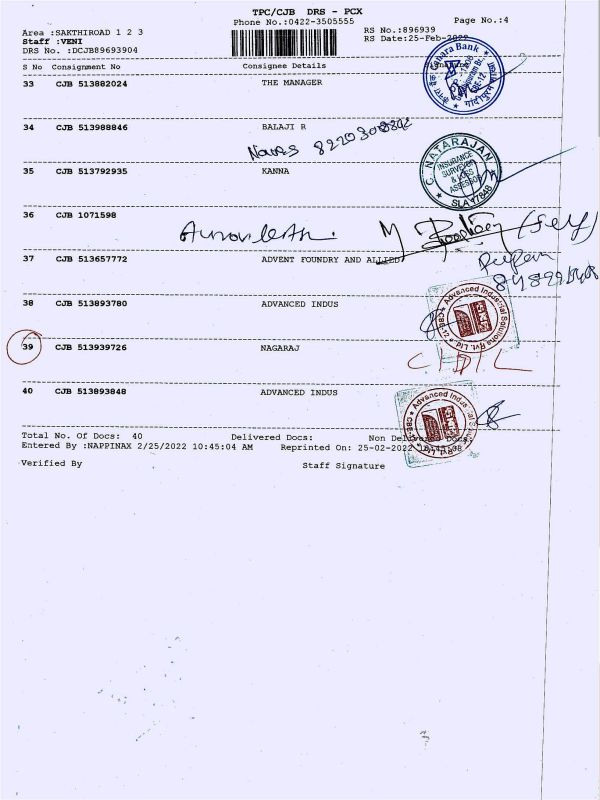 TPC/CJB DRS - PCX
Phone No.:0422-3505555
Page No.:4
Area :SAKTHIROAD 1 2 3
RS No.:896939
Staff :VENI
RS Date:25-Feb-2022
DRS No. :DCJB89693904
S No Consignment No Consignee Details
33 CJB 513882024 THE MANAGER
Canara Bank
34 CJB 513988846 BALAJI R
C. NATARAJAN
INSURANCE
SURVEYOR
& LOSS
ASSESSOR
SLA 17848
35 CJB 513792935 KANNA
36 CJB 1071598
(self)
37 CJB 513657772 ADVENT FOUNDRY AND ALLIED
38 CJB 513893780 ADVANCED INDUS
Advanced Industrial Solutions Pvt. Ltd.
CBE-12
39 CJB 513939726 NAGARAJ
40 CJB 513893848 ADVANCED INDUS
Advanced Industrial
Total No. Of Docs: 40 Delivered Docs: Non Delivered Docs:
Entered By :NAPPINAX 2/25/2022 10:45:04 AM Reprinted On: 25-02-2022
Verified By Staff Signature